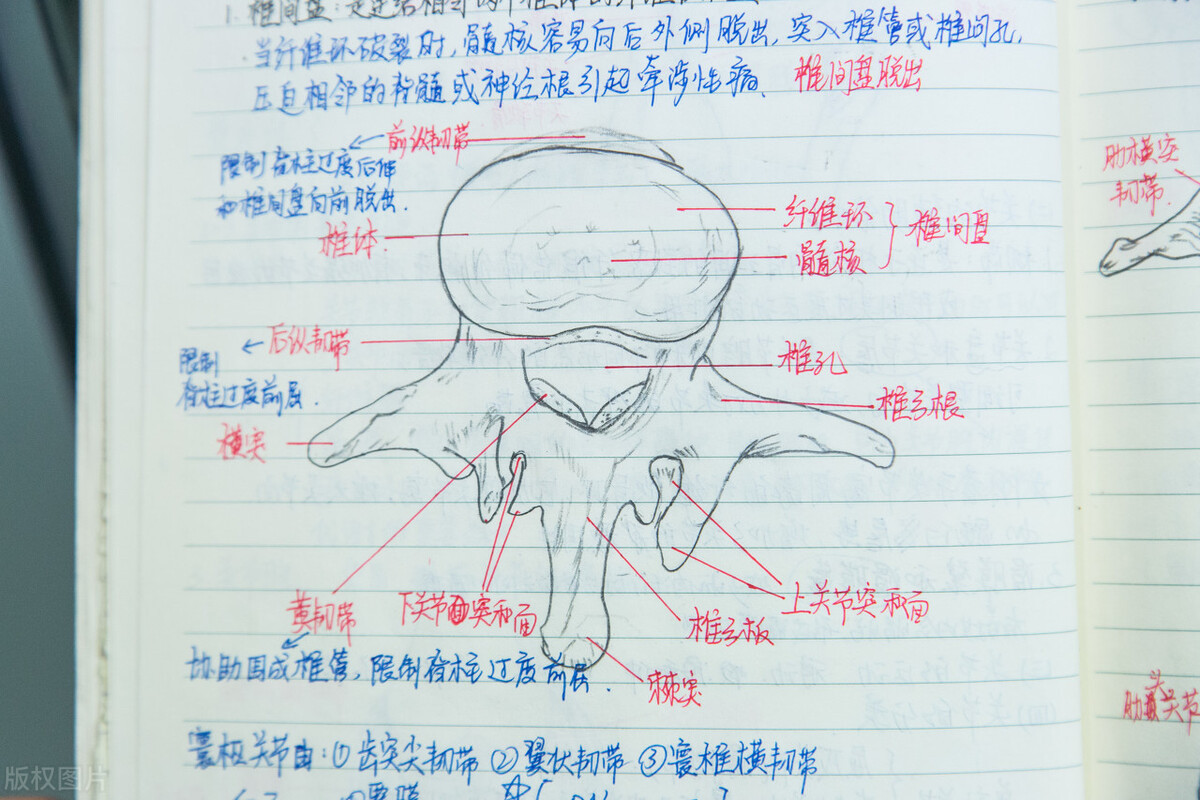 1. 椎间盘：是连结相邻两个椎体的纤维
当纤维环破裂时，髓核容易向后外侧脱出，突入椎管或椎间孔，
压迫相邻的脊髓或神经根引起牵涉性痛、椎间盘脱出
前纵韧带
限制脊柱过度后伸
和椎间盘向前脱出.
椎体.
纤维环
髓核
椎间盘
后纵韧带
限制
脊柱过度前屈.
椎孔
椎弓根
横突
黄韧带
下关节突和面
椎弓板
上关节突和面
棘突
协助围成椎管，限制脊柱过度前屈.
寰枢关节由：①齿突尖韧带 ②翼状韧带 ③寰椎横韧带
覆膜
肋横突
韧带.
肋头关节
版权图片